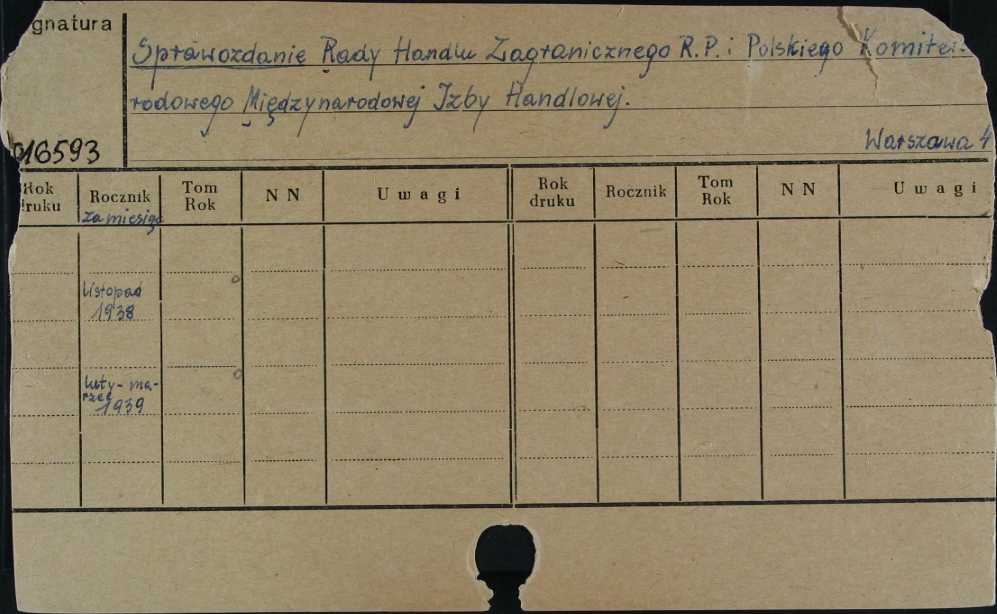 gnatura
Sprawozdanie Rady Handlu Zagranicznego R.P. i Polskiego Komite
rodowego Międzynarodowej Izby Handlowej.
16593
Warszawa
Rok druku Rocznik Tom Rok NN Uwagi Rok druku Rocznik Tom Rok NN Uwagi
za miesiąc
listopad
1938
luty-ma-
rzec
1939